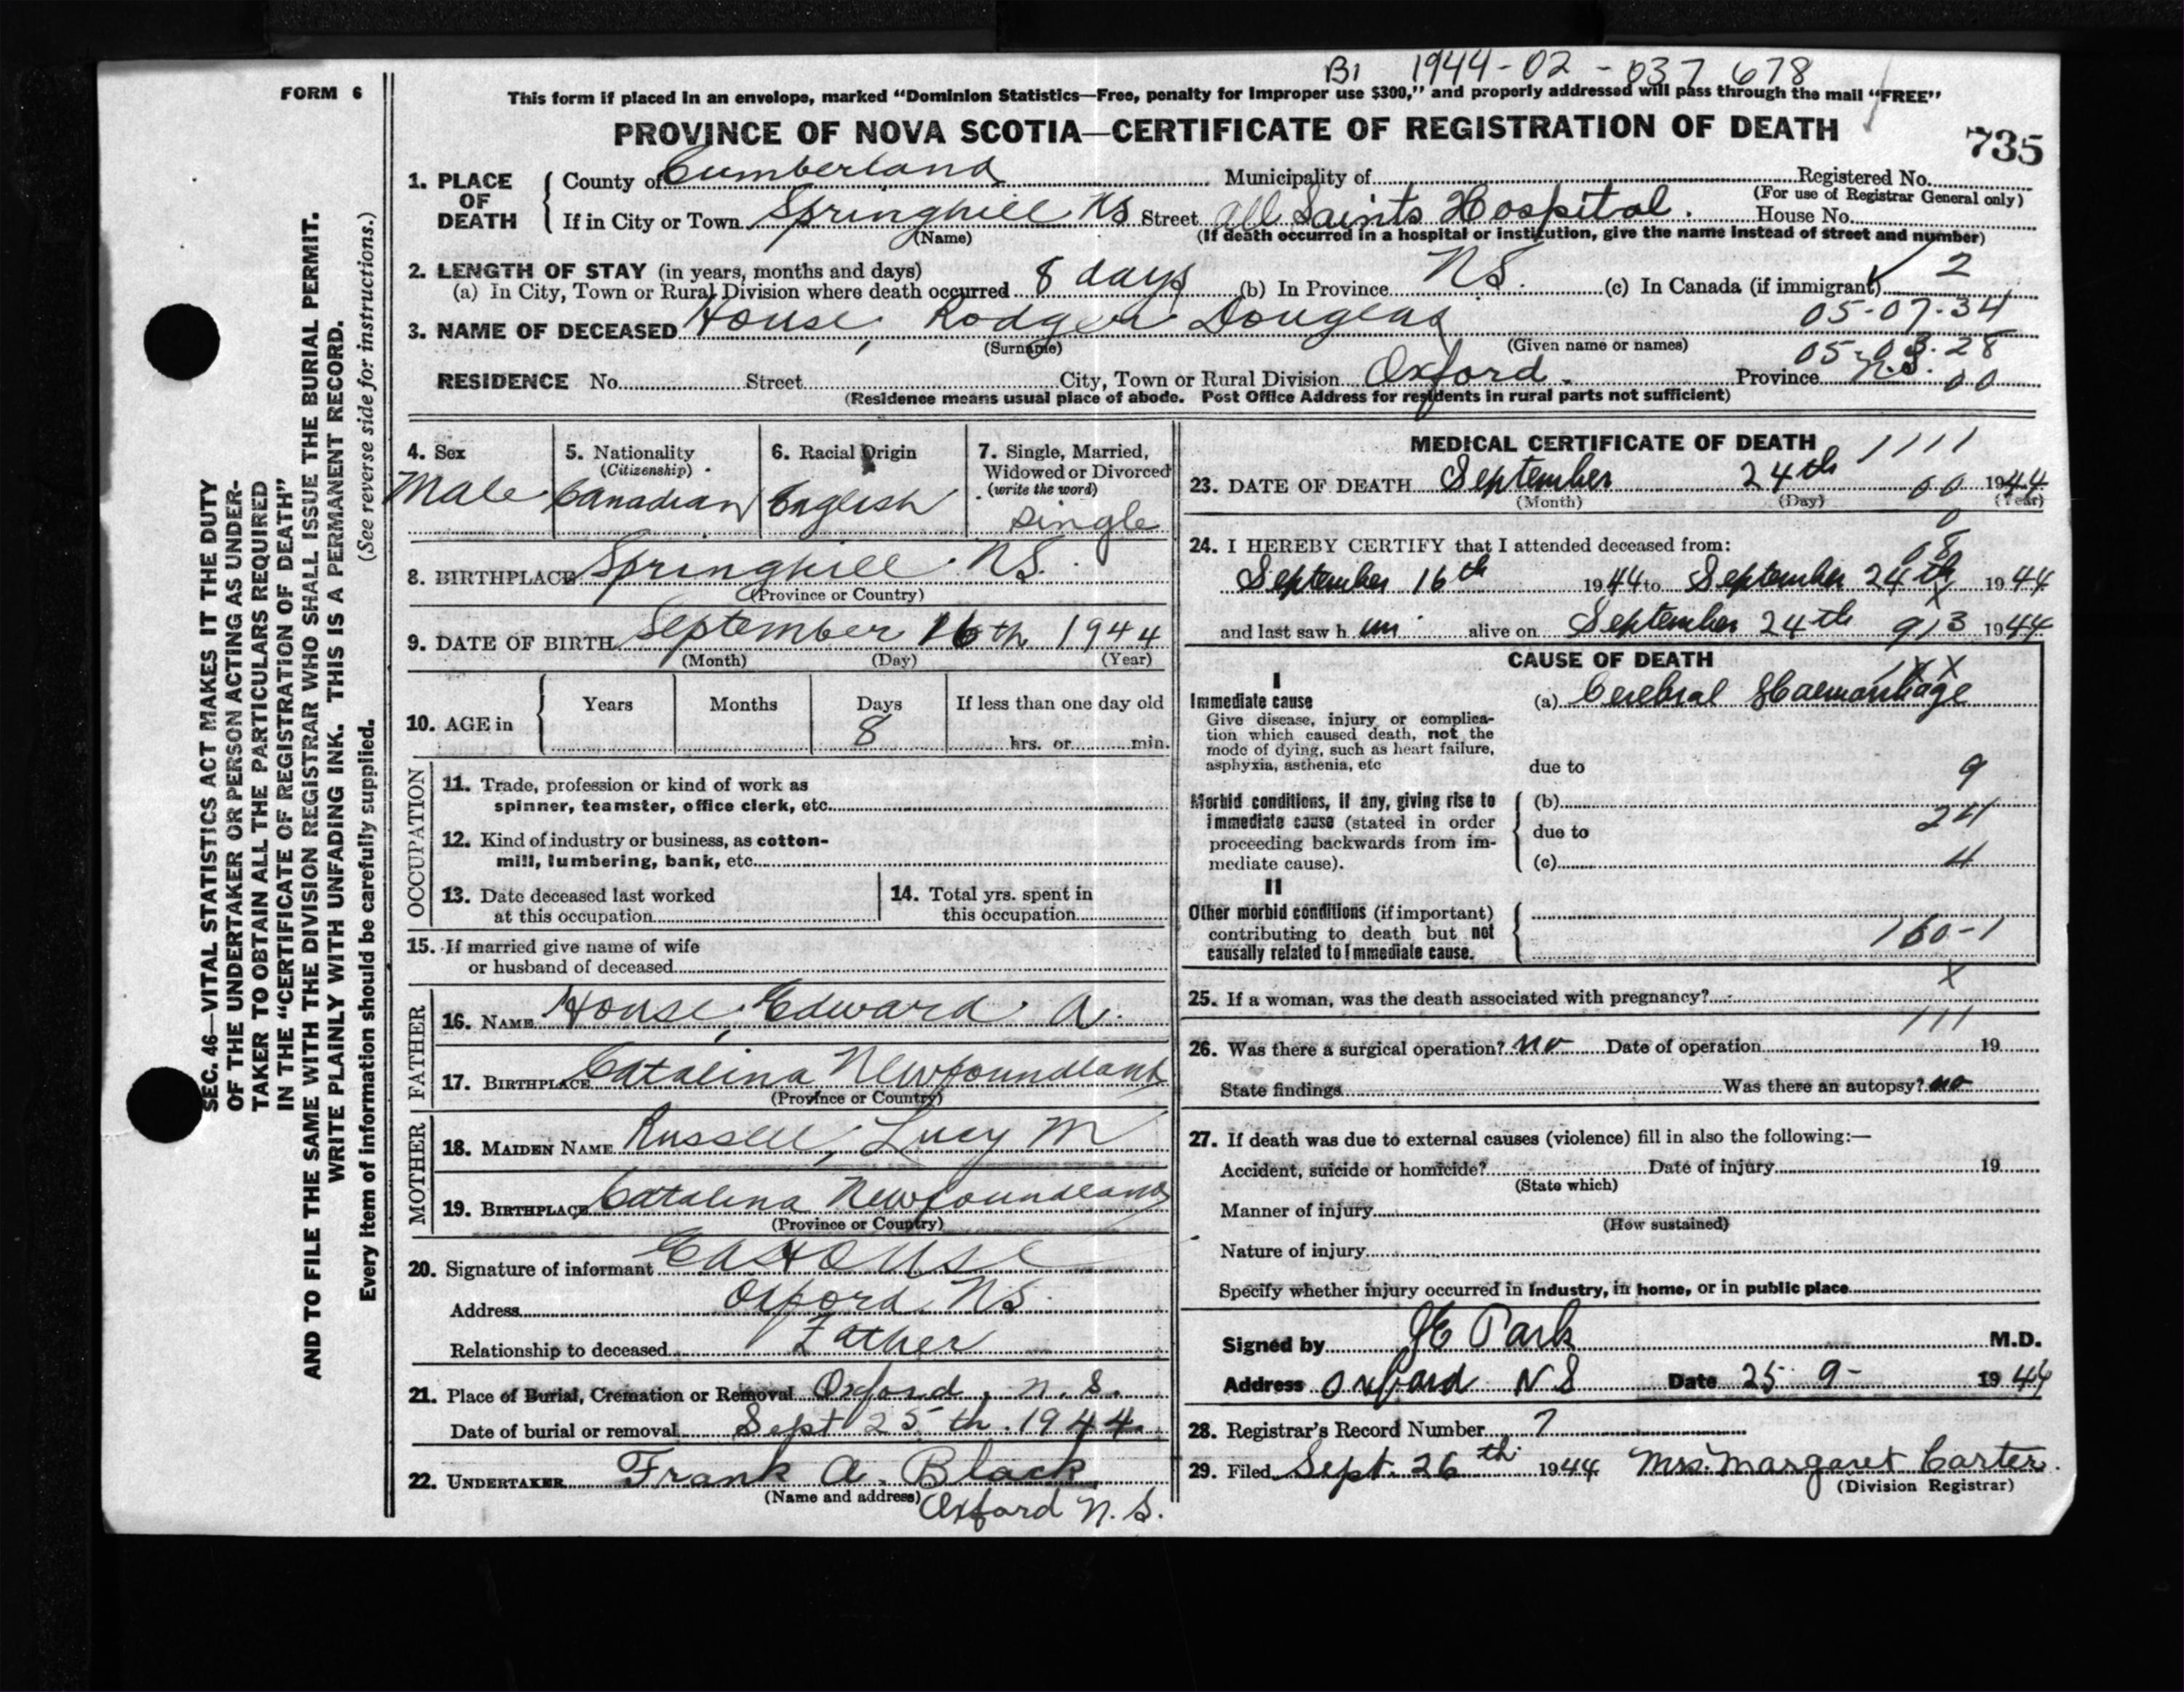 B1 1944-02-037678
FORM 6
This form if placed in an envelope, marked "Dominion Statistics—Free, penalty for improper use $300," and properly addressed will pass through the mail "FREE"
PROVINCE OF NOVA SCOTIA—CERTIFICATE OF REGISTRATION OF DEATH
735
1. PLACE OF DEATH
County of Cumberland Municipality of Registered No.
(For use of Registrar General only)
If in City or Town Springhill NS Street All Saints Hospital. House No.
(Name) (If death occurred in a hospital or institution, give the name instead of street and number)
2. LENGTH OF STAY (in years, months and days)
(a) In City, Town or Rural Division where death occurred 8 days (b) In Province NS. (c) In Canada (if immigrant) 2
05-07-34
3. NAME OF DECEASED House, Rodger Douglas
(Surname) (Given name or names)
05-03-28
RESIDENCE No. Street City, Town or Rural Division Oxford. Province N.S. 00
(Residence means usual place of abode. Post Office Address for residents in rural parts not sufficient)
4. Sex
Male
5. Nationality
(Citizenship)
Canadian
6. Racial Origin
English
7. Single, Married,
Widowed or Divorced
(write the word)
Single
8. BIRTHPLACE Springhill NS.
(Province or Country)
9. DATE OF BIRTH September 16th 1944
(Month) (Day) (Year)
10. AGE in
Years Months Days If less than one day old
8 hrs. or min.
OCCUPATION
11. Trade, profession or kind of work as
spinner, teamster, office clerk, etc.
12. Kind of industry or business, as cotton-
mill, lumbering, bank, etc.
13. Date deceased last worked
at this occupation
14. Total yrs. spent in
this occupation
15. If married give name of wife
or husband of deceased
FATHER
16. NAME House, Edward A.
17. BIRTHPLACE Catalina Newfoundland
(Province or Country)
MOTHER
18. MAIDEN NAME Russell, Lucy M
19. BIRTHPLACE Catalina Newfoundland
(Province or Country)
20. Signature of informant E A House
Address Oxford NS.
Relationship to deceased Father
21. Place of Burial, Cremation or Removal Oxford, N.S.
Date of burial or removal Sept 25th. 1944.
22. UNDERTAKER Frank A. Black
(Name and address) Oxford N.S.
MEDICAL CERTIFICATE OF DEATH 1111
23. DATE OF DEATH September 24th 00 1944
(Month) (Day) (Year)
0
24. I HEREBY CERTIFY that I attended deceased from:
08
September 16th 1944 to September 24th 1944
and last saw h im alive on September 24th 913 1944
CAUSE OF DEATH
I
Immediate cause
Give disease, injury or complica-
tion which caused death, not the
mode of dying, such as heart failure,
asphyxia, asthenia, etc
(a) Cerebral Haemorrhage
due to 9
Morbid conditions, if any, giving rise to
immediate cause (stated in order
proceeding backwards from im-
mediate cause).
(b)
due to 24
(c) 4
II
Other morbid conditions (if important)
contributing to death but not
causally related to immediate cause.
160-1
X
25. If a woman, was the death associated with pregnancy?
111
26. Was there a surgical operation? no Date of operation 19
State findings Was there an autopsy? no
27. If death was due to external causes (violence) fill in also the following:—
Accident, suicide or homicide? Date of injury 19
(State which)
Manner of injury
(How sustained)
Nature of injury
Specify whether injury occurred in industry, in home, or in public place
Signed by J E Park M.D.
Address Oxford NS Date 25 9- 1944
28. Registrar's Record Number 7
29. Filed Sept. 26th 1944 Mrs. Margaret Carter.
(Division Registrar)
SEC. 46—VITAL STATISTICS ACT MAKES IT THE DUTY
OF THE UNDERTAKER OR PERSON ACTING AS UNDER-
TAKER TO OBTAIN ALL THE PARTICULARS REQUIRED
IN THE "CERTIFICATE OF REGISTRATION OF DEATH"
AND TO FILE THE SAME WITH THE DIVISION REGISTRAR WHO SHALL ISSUE THE BURIAL PERMIT.
WRITE PLAINLY WITH UNFADING INK. THIS IS A PERMANENT RECORD.
Every item of information should be carefully supplied. (See reverse side for instructions.)